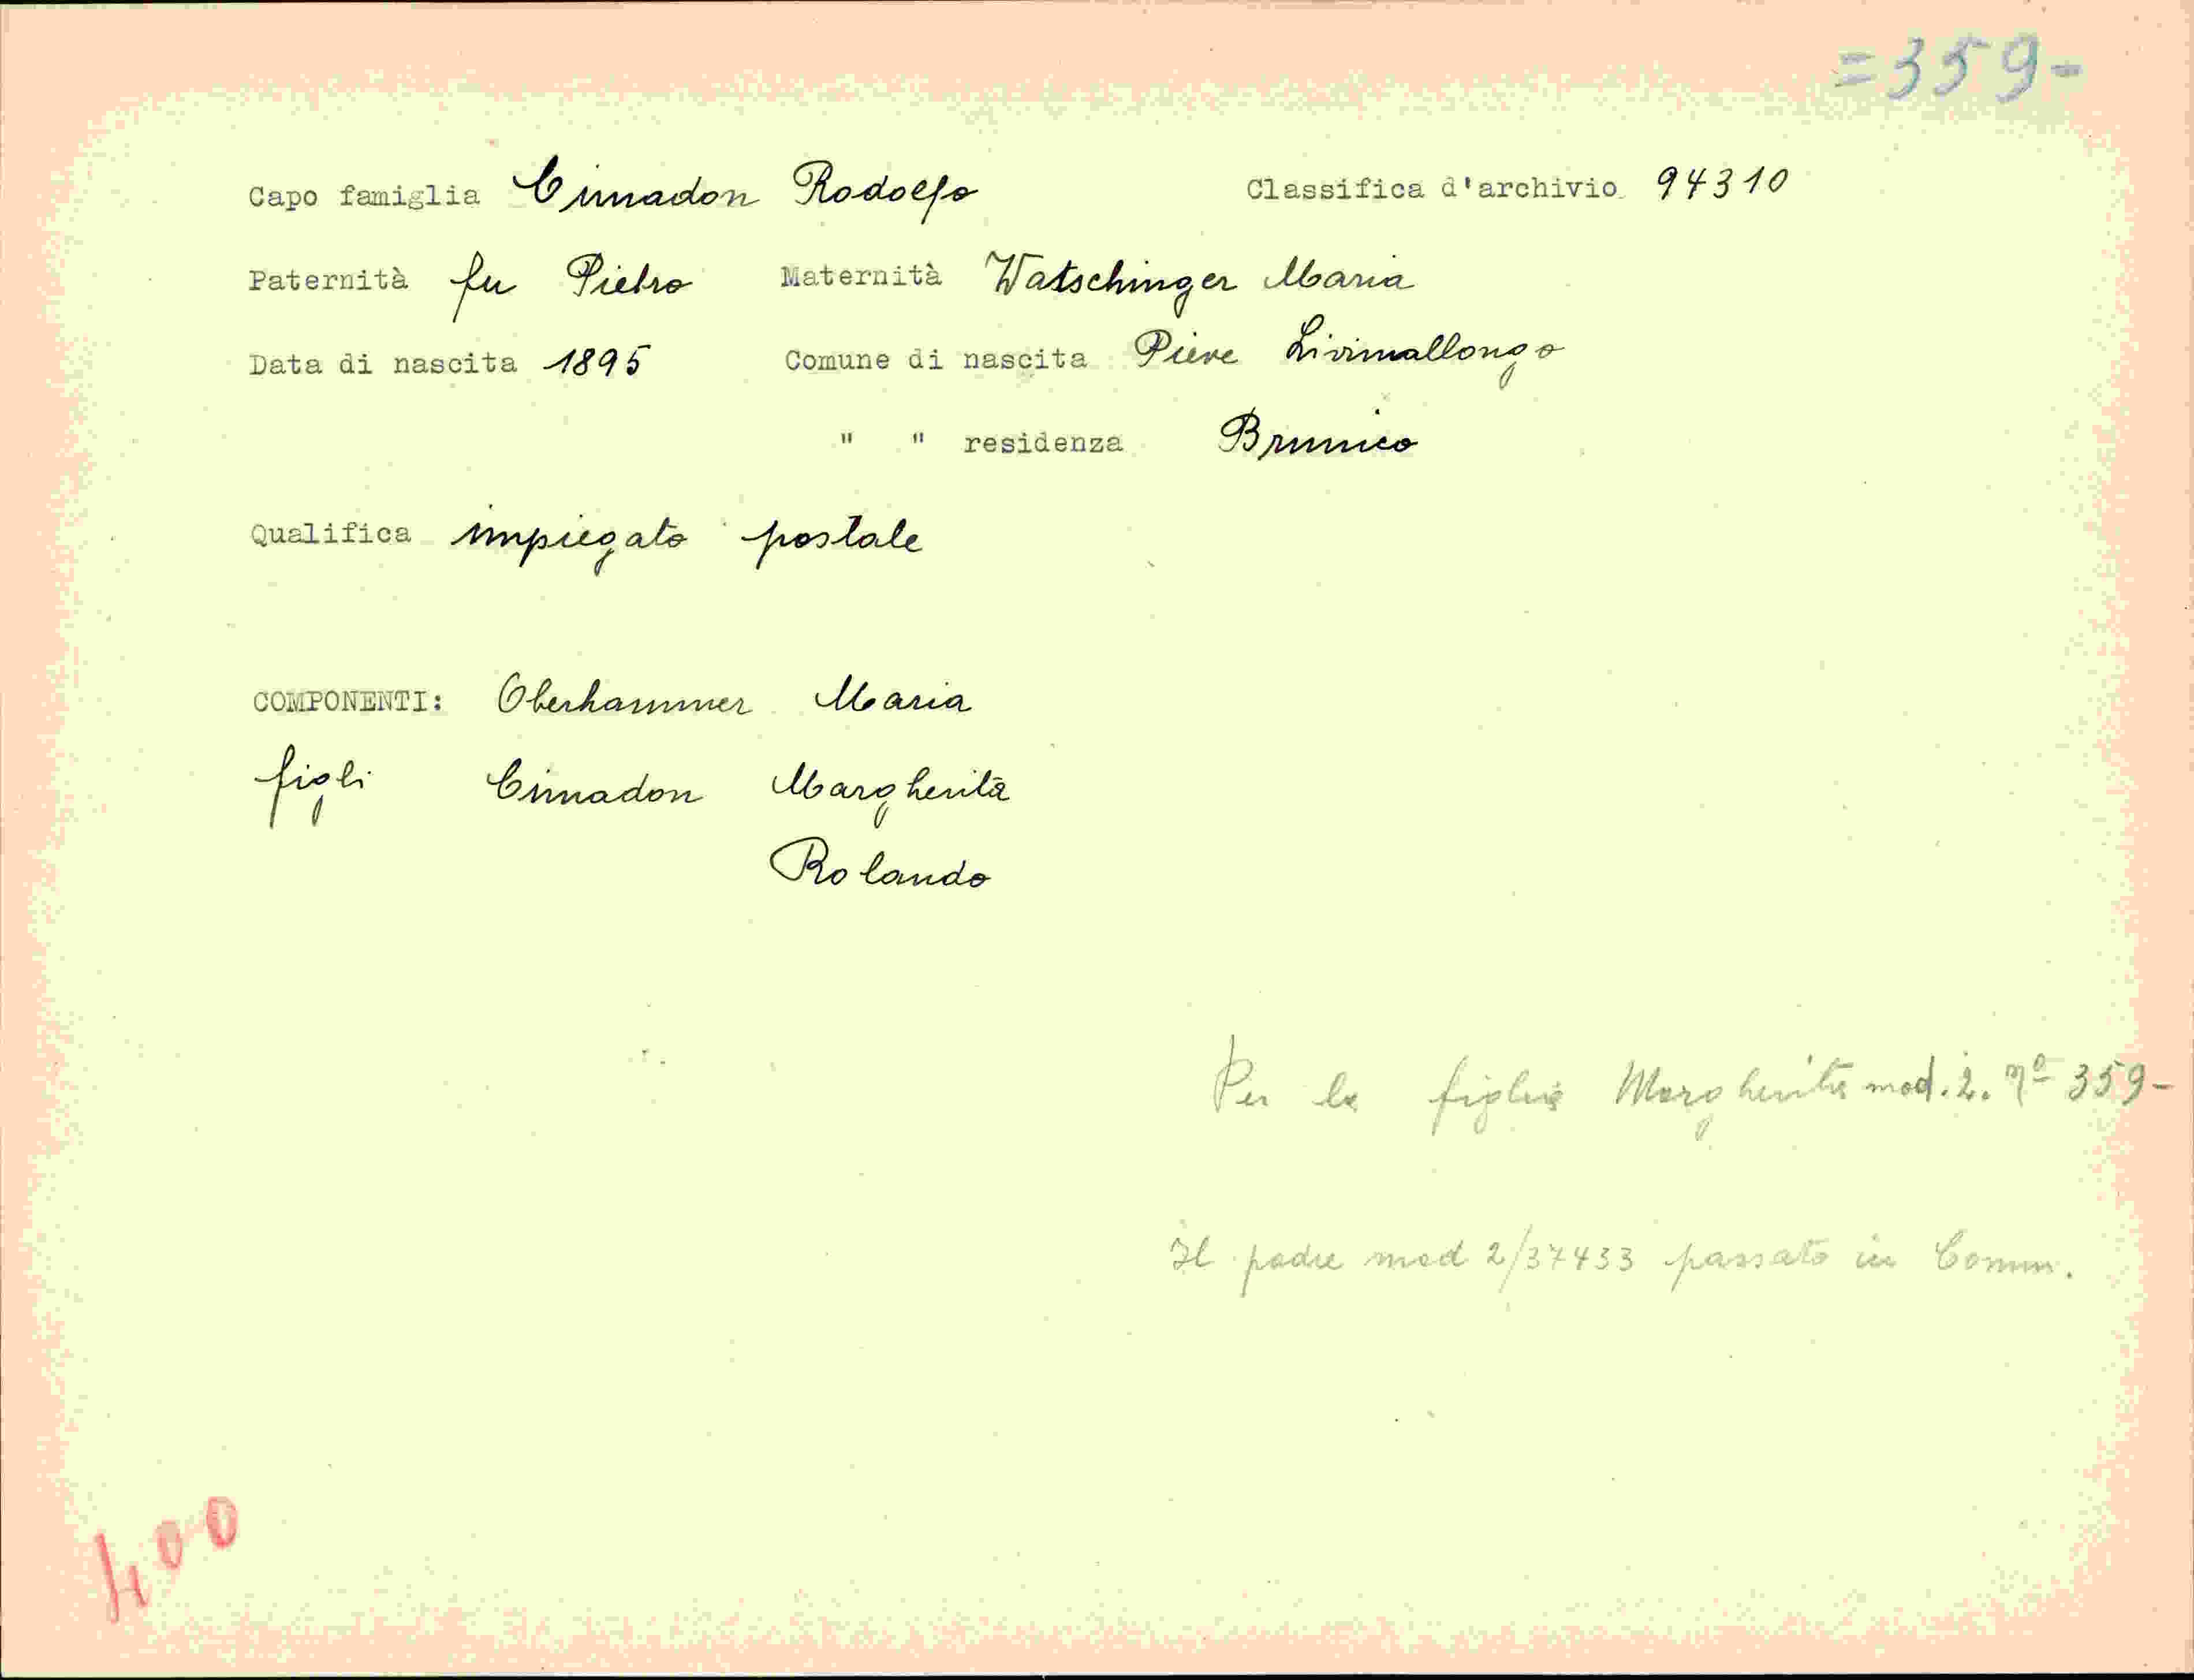 =359-
Capo famiglia Cimadon Rodolfo Classifica d'archivio 94310
Paternità fu Pietro Maternità Watschinger Maria
Data di nascita 1895 Comune di nascita Pieve Livinallongo
" " residenza Brunico
Qualifica impiegato postale
COMPONENTI: Oberhammer Maria
figli Cimadon Margherita
Rolando
Per la figlia Margherita mod. 2. nº 359-
Il padre mod 2/37433 passato in Comm.
400